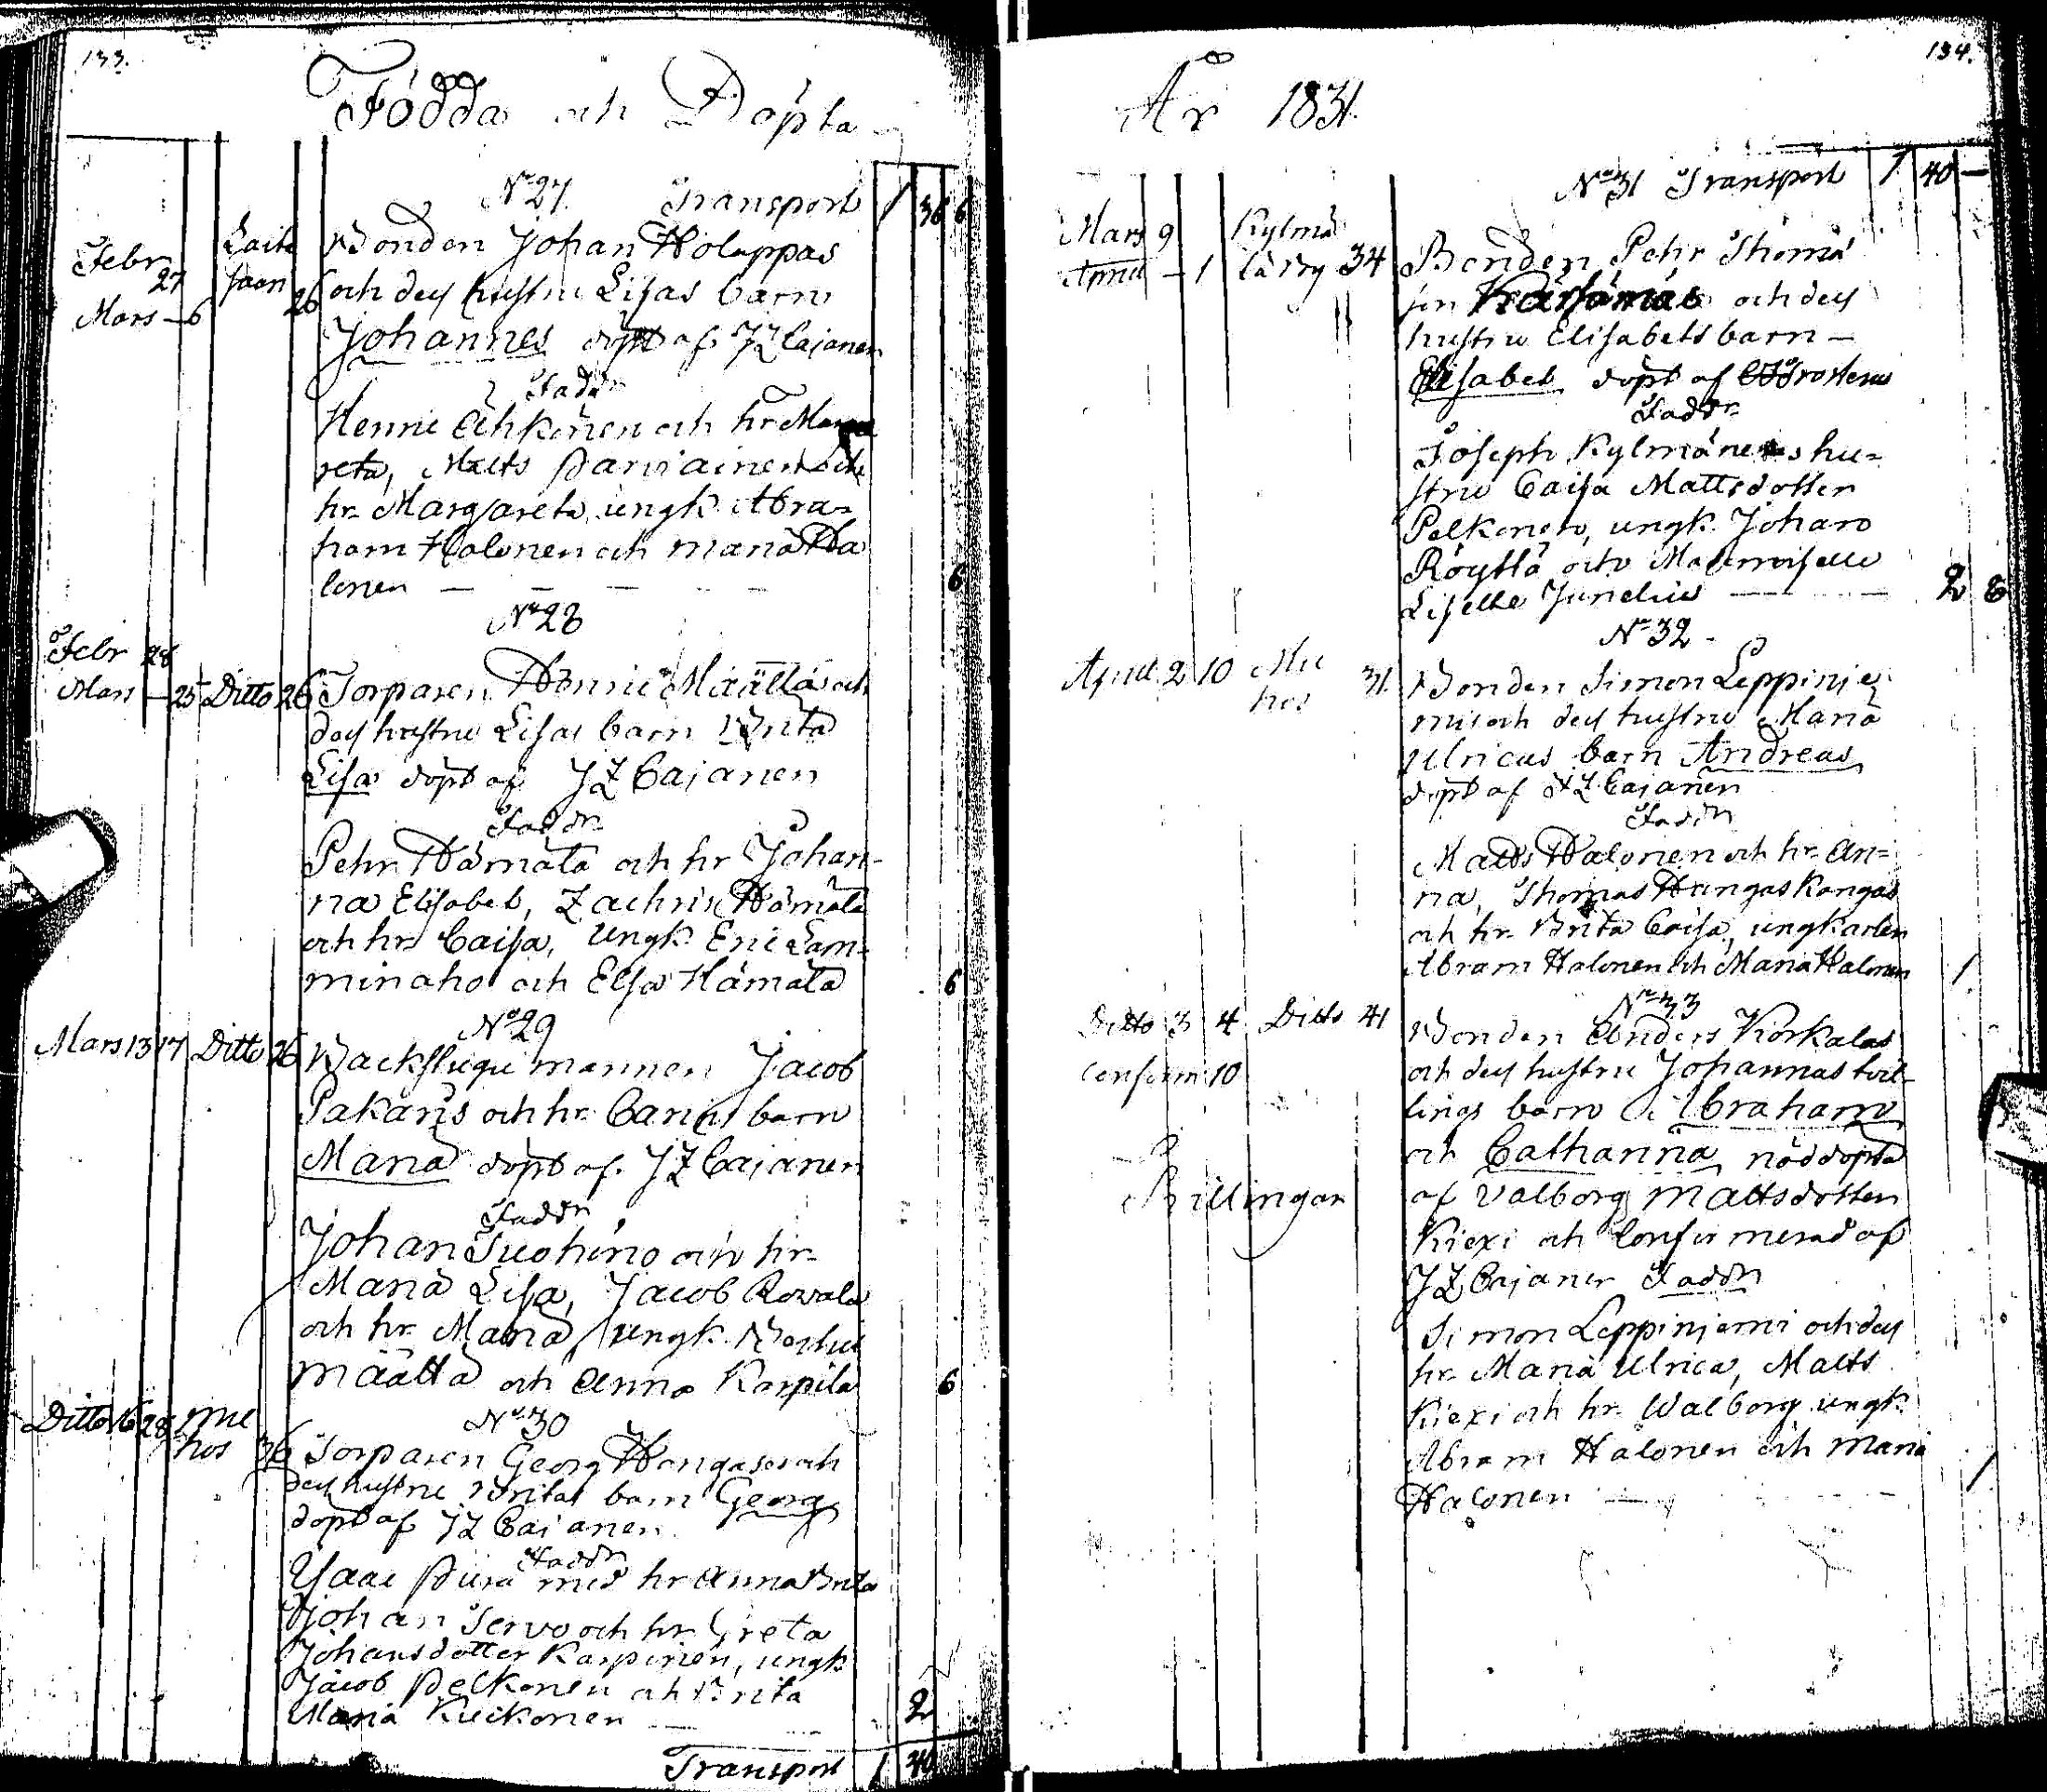 133.
Födda och Döpta
N° 27. Transport 1 36 6
Febr 27 Mars – 6 Laita saari 26 Bonden Johan Holappas
och dess hustru Lisas barn
Johannes döpt af JZ Cajanen
Faddr
Henric Ähkönen och hr Marga
reta, Matts Parviainen och
hr Margareta, ungk. Abra=
ham Halonen och Maria Ha
lonen — — — — 6
N° 28
Febr 28
Mars – 25 Ditto 26 Torparen Henric Määttäs och
dess hustru Lisas barn Brita
Lisa döpt af JZ Cajanen
Faddr
Pehr Hämälä och hr Johan-
na Elisabet, Zachris Hämälä
och hr Caisa, Ungk. Eric Lam=
minaho och Elsa Hämälä 6
N° 29
Mars 13 17 Ditto 26 Backstugu mannen Jacob
Pakars och hr Carins barn
Maria döpt af JZ Cajanen
Faddr
Johan Tuohino och hr
Maria Lisa, Jacob Rovala
och hr Maria, ungk.
Määtta och Anna Karpila 6
N° 30
Ditto 16 28 Mu
hos 36 Torparen Georg Hongases och
dess hustru Britas barn Georg
döpt af JZ Cajanen
Faddr
Isaac Pura med hr Anna Brita
Johan Servo och hr Greta
Johansdotter Karpinen, ungk.
Jacob Pelkonen och Brita
Maria Kuikonen — 2
Transport 1 40
134.
År 1831.
N° 31 Transport 1 40 —
Mars 9 Kylmä
April – 1 lä by 34 Bonden Pehr Thoma
son Kärsämäs och dess
hustru Elisabets barn –
Elisabet döpt af Frosterus
Faddr
Joseph Kylmänens hu=
stru Caisa Mattsdotter
Pelkonen, ungk. Johan
Röyttä och Mademoiselle
Lisette Junelius — 2 6
N° 32
April 2 10 Mu
hos 31. Bonden Simon Leppinie
mis och dess hustru Maria
Ulricas barn Andreas
döpt af JZ Cajanen
Faddr
Matts Halonen och hr An=
na, Thomas Hangaskangas
och hr Brita Caisa, ungkarlen
Abram Halonen och Maria Halonen 1.
N° 33
Ditto 3 4 Ditto 41 Bonden Anders Korkalas
Confirm 10 och dess hustru Johannas tvil-
lings barn Abraham
och Catharina nöddöpta
Tvillingar af Valborg Mattsdotter
Kiexi och Confirmerad af
JZ Cajanen Faddr
Simon Leppiniemi och dess
hr Maria Ulrica, Matts
Kiexi och hr Walborg ungk.
Abram Halonen och Maria
Halonen — 1